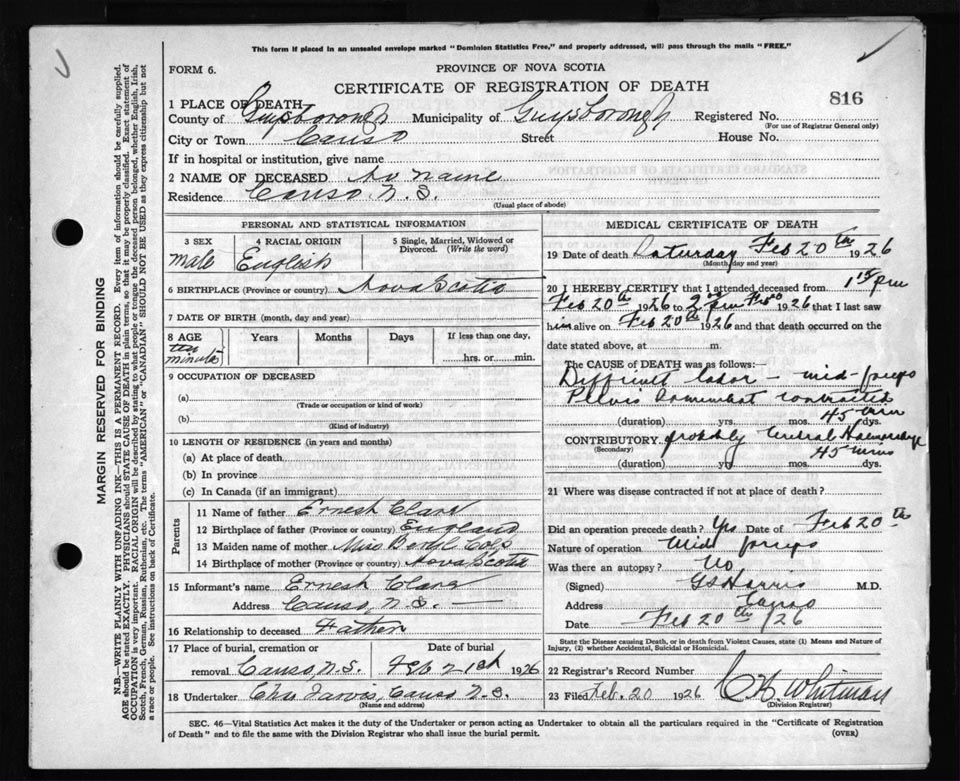 This form if placed in an unsealed envelope marked "Dominion Statistics Free," and properly addressed, will pass through the mails "FREE."
FORM 6.
PROVINCE OF NOVA SCOTIA
CERTIFICATE OF REGISTRATION OF DEATH
816
1 PLACE OF DEATH
County of Guysborough Municipality of Guysborough Registered No.
(For use of Registrar General only)
City or Town Canso Street House No.
If in hospital or institution, give name
2 NAME OF DECEASED No name
Residence Canso N. S.
(Usual place of abode)
PERSONAL AND STATISTICAL INFORMATION
3 SEX male 4 RACIAL ORIGIN English 5 Single, Married, Widowed or Divorced. (Write the word)
6 BIRTHPLACE (Province or country) Nova Scotia
7 DATE OF BIRTH (month, day and year)
8 AGE minute Years Months Days If less than one day,
hrs. or min.
9 OCCUPATION OF DECEASED
(a)
(Trade or occupation or kind of work)
(b)
(Kind of industry)
10 LENGTH OF RESIDENCE (in years and months)
(a) At place of death
(b) In province
(c) In Canada (if an immigrant)
Parents
11 Name of father Ernest Clark
12 Birthplace of father (Province or country) England
13 Maiden name of mother Miss Beryl
14 Birthplace of mother (Province or country) Nova Scotia
15 Informant's name Ernest Clark
Address Canso, N.S.
16 Relationship to deceased Father
17 Place of burial, cremation or removal Canso, N.S. Date of burial Feb 21st 1926
18 Undertaker Chas Jarvis, Canso N.S.
(Name and address)
MEDICAL CERTIFICATE OF DEATH
19 Date of death Saturday Feb 20th 1926
(Month, day and year)
20 I HEREBY CERTIFY that I attended deceased from 1 15 pm
Feb 20th 1926 to 2 pm Feb 20 1926 that I last saw
him alive on Feb 20th 1926 and that death occurred on the
date stated above, at m.
The CAUSE OF DEATH was as follows:
Difficult labor - mid-forceps
Pelvis somewhat contracted
45 min
(duration) yrs. mos. dys.
CONTRIBUTORY probably Cerebral Haemorrhage
(Secondary)
45 mins
(duration) yrs mos. dys.
21 Where was disease contracted if not at place of death?
Did an operation precede death? Yes Date of Feb 20th
Nature of operation Mid forceps
Was there an autopsy? No
(Signed) G S Harris M.D.
Address Canso
Date Feb 20th /26
State the Disease causing Death, or in death from Violent Causes, state (1) Means and Nature of Injury, (2) whether Accidental, Suicidal or Homicidal.
22 Registrar's Record Number
23 Filed Feb. 20 1926 Whitman
(Division Registrar)
SEC. 46—Vital Statistics Act makes it the duty of the Undertaker or person acting as Undertaker to obtain all the particulars required in the "Certificate of Registration
of Death" and to file the same with the Division Registrar who shall issue the burial permit.
(OVER)
MARGIN RESERVED FOR BINDING
N.B.—WRITE PLAINLY WITH UNFADING INK—THIS IS A PERMANENT RECORD. Every item of information should be carefully supplied.
AGE should be stated EXACTLY. PHYSICIANS should STATE CAUSE OF DEATH in plain terms, so that it may be properly classified. Exact statement of
OCCUPATION is very important. RACIAL ORIGIN will be described by stating to what people or tongue the deceased person belonged, whether English, Irish,
Scotch, French, German, Russian, Ruthenian, etc. The terms "AMERICAN" or "CANADIAN" SHOULD NOT BE USED as they express citizenship but not
a race or people. See instructions on back of Certificate.